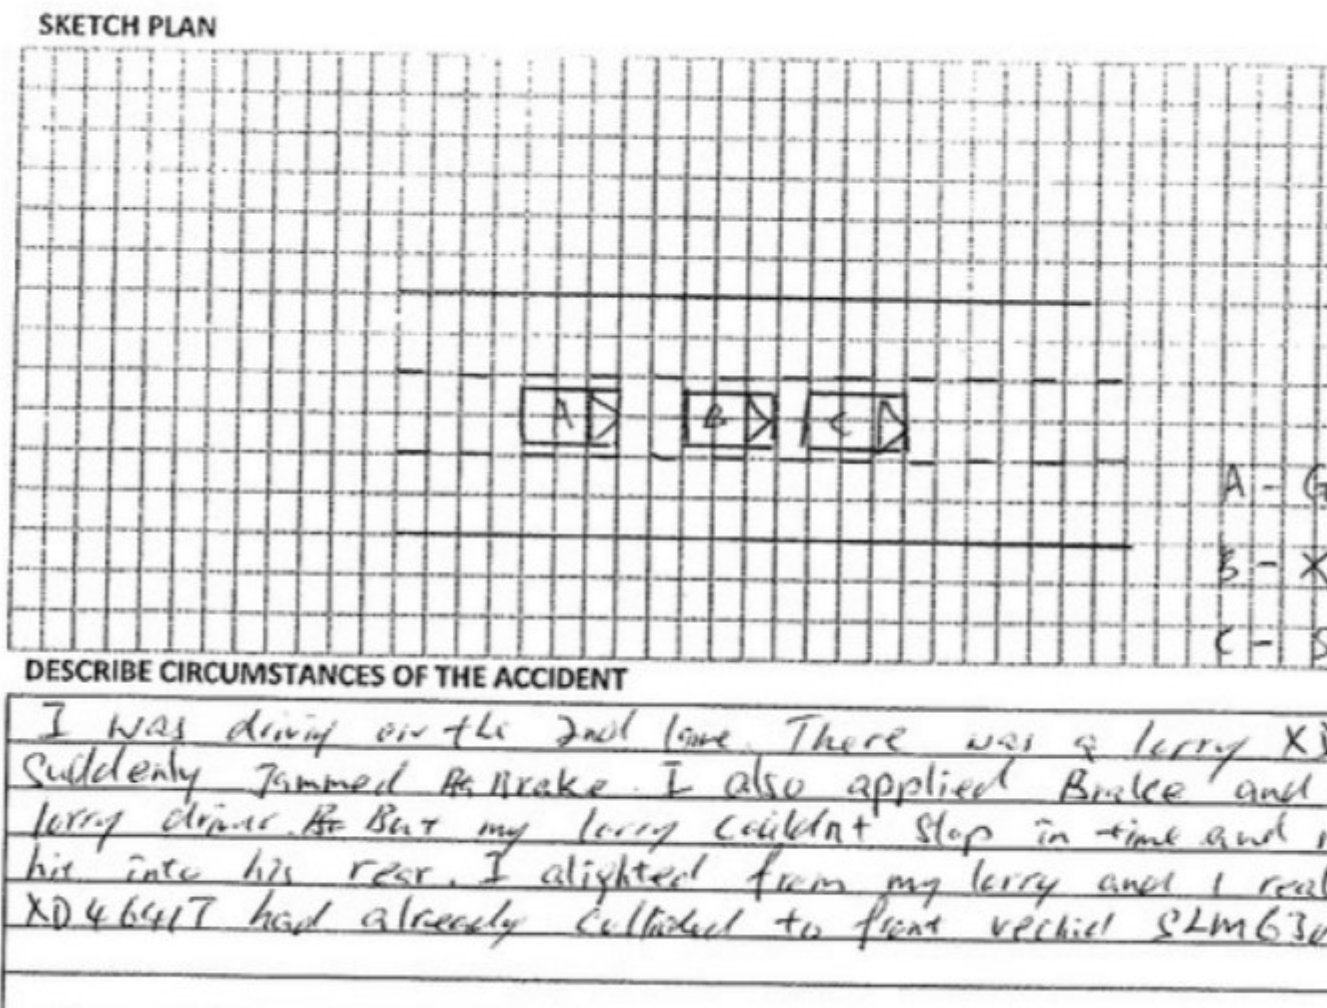 SKETCH PLAN
A B C
A - G
B - X
C - S
DESCRIBE CIRCUMSTANCES OF THE ACCIDENT
I was driving on the 2nd lane. There was a lorry
Suddenly Jammed Brake. I also applied Brake and
lorry driver. But my lorry couldnt stop in time and
hit into his rear. I alighted from my lorry and I real
XD4641T had already collided to front vechicl SLM630